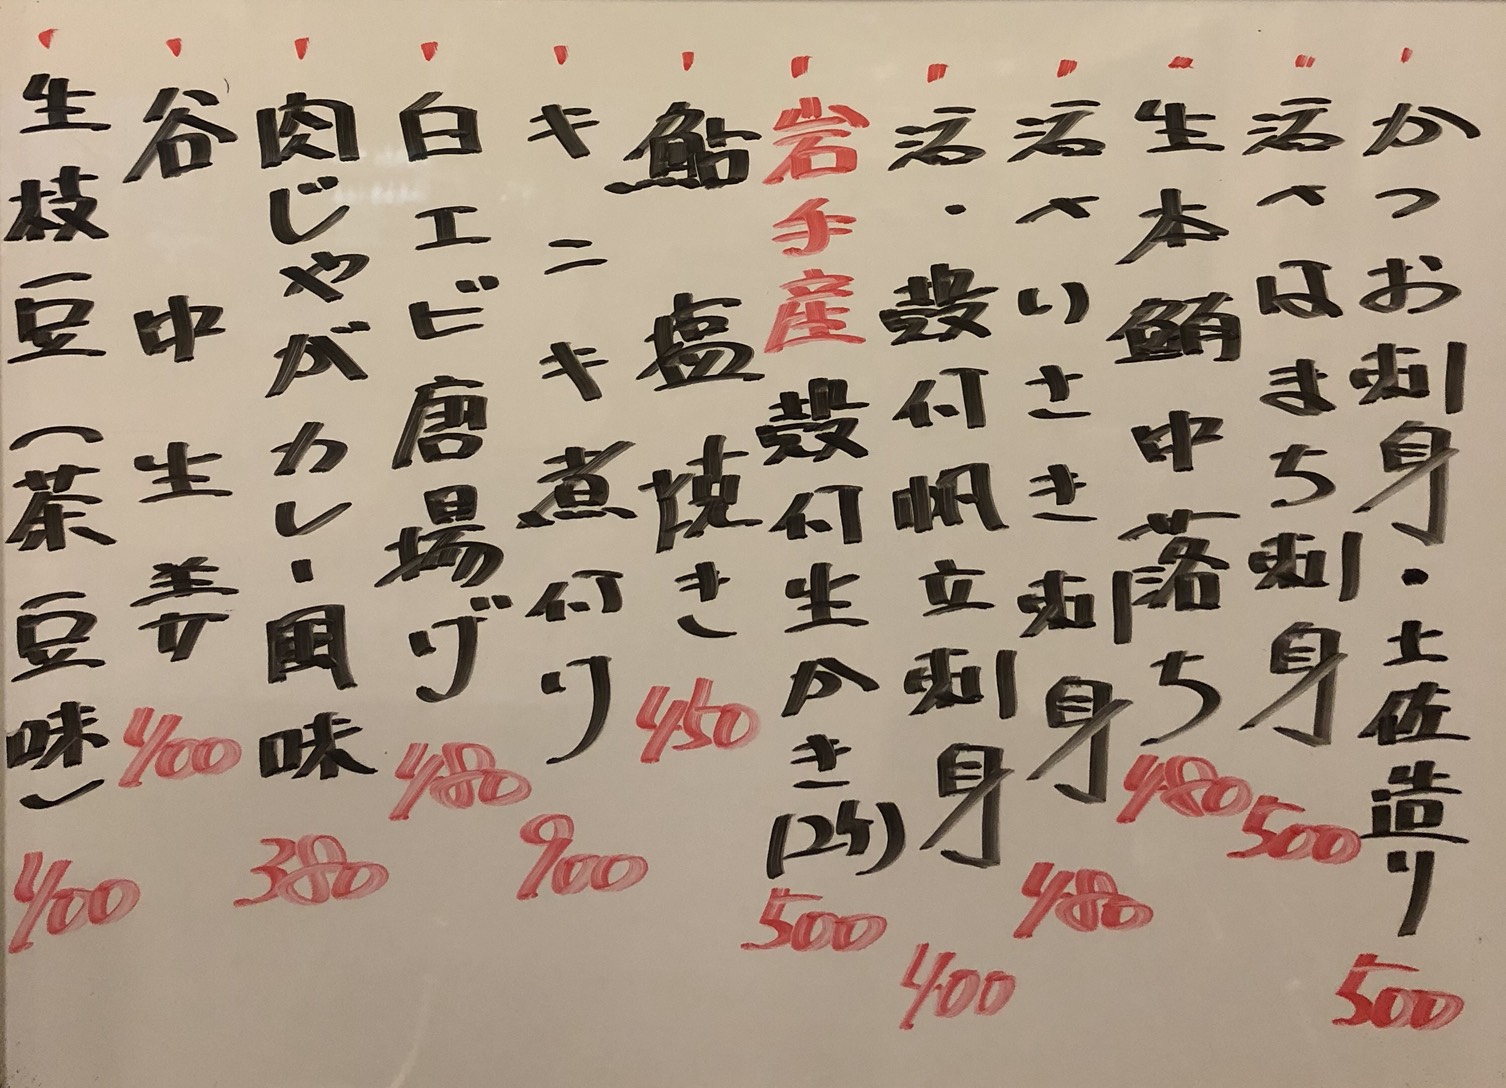 かつお刺身・土佐造り 500
活〆はまち刺身 500
生本鮪中落ち 480
活〆いさき刺身 480
活・殻付帆立刺身 400
岩手産殻付生かき(2ケ) 500
鮎塩焼き 450
キンキ煮付け 900
白エビ唐揚げ 480
肉じゃがカレー風味 380
谷中生姜 400
生枝豆(茶豆味) 400